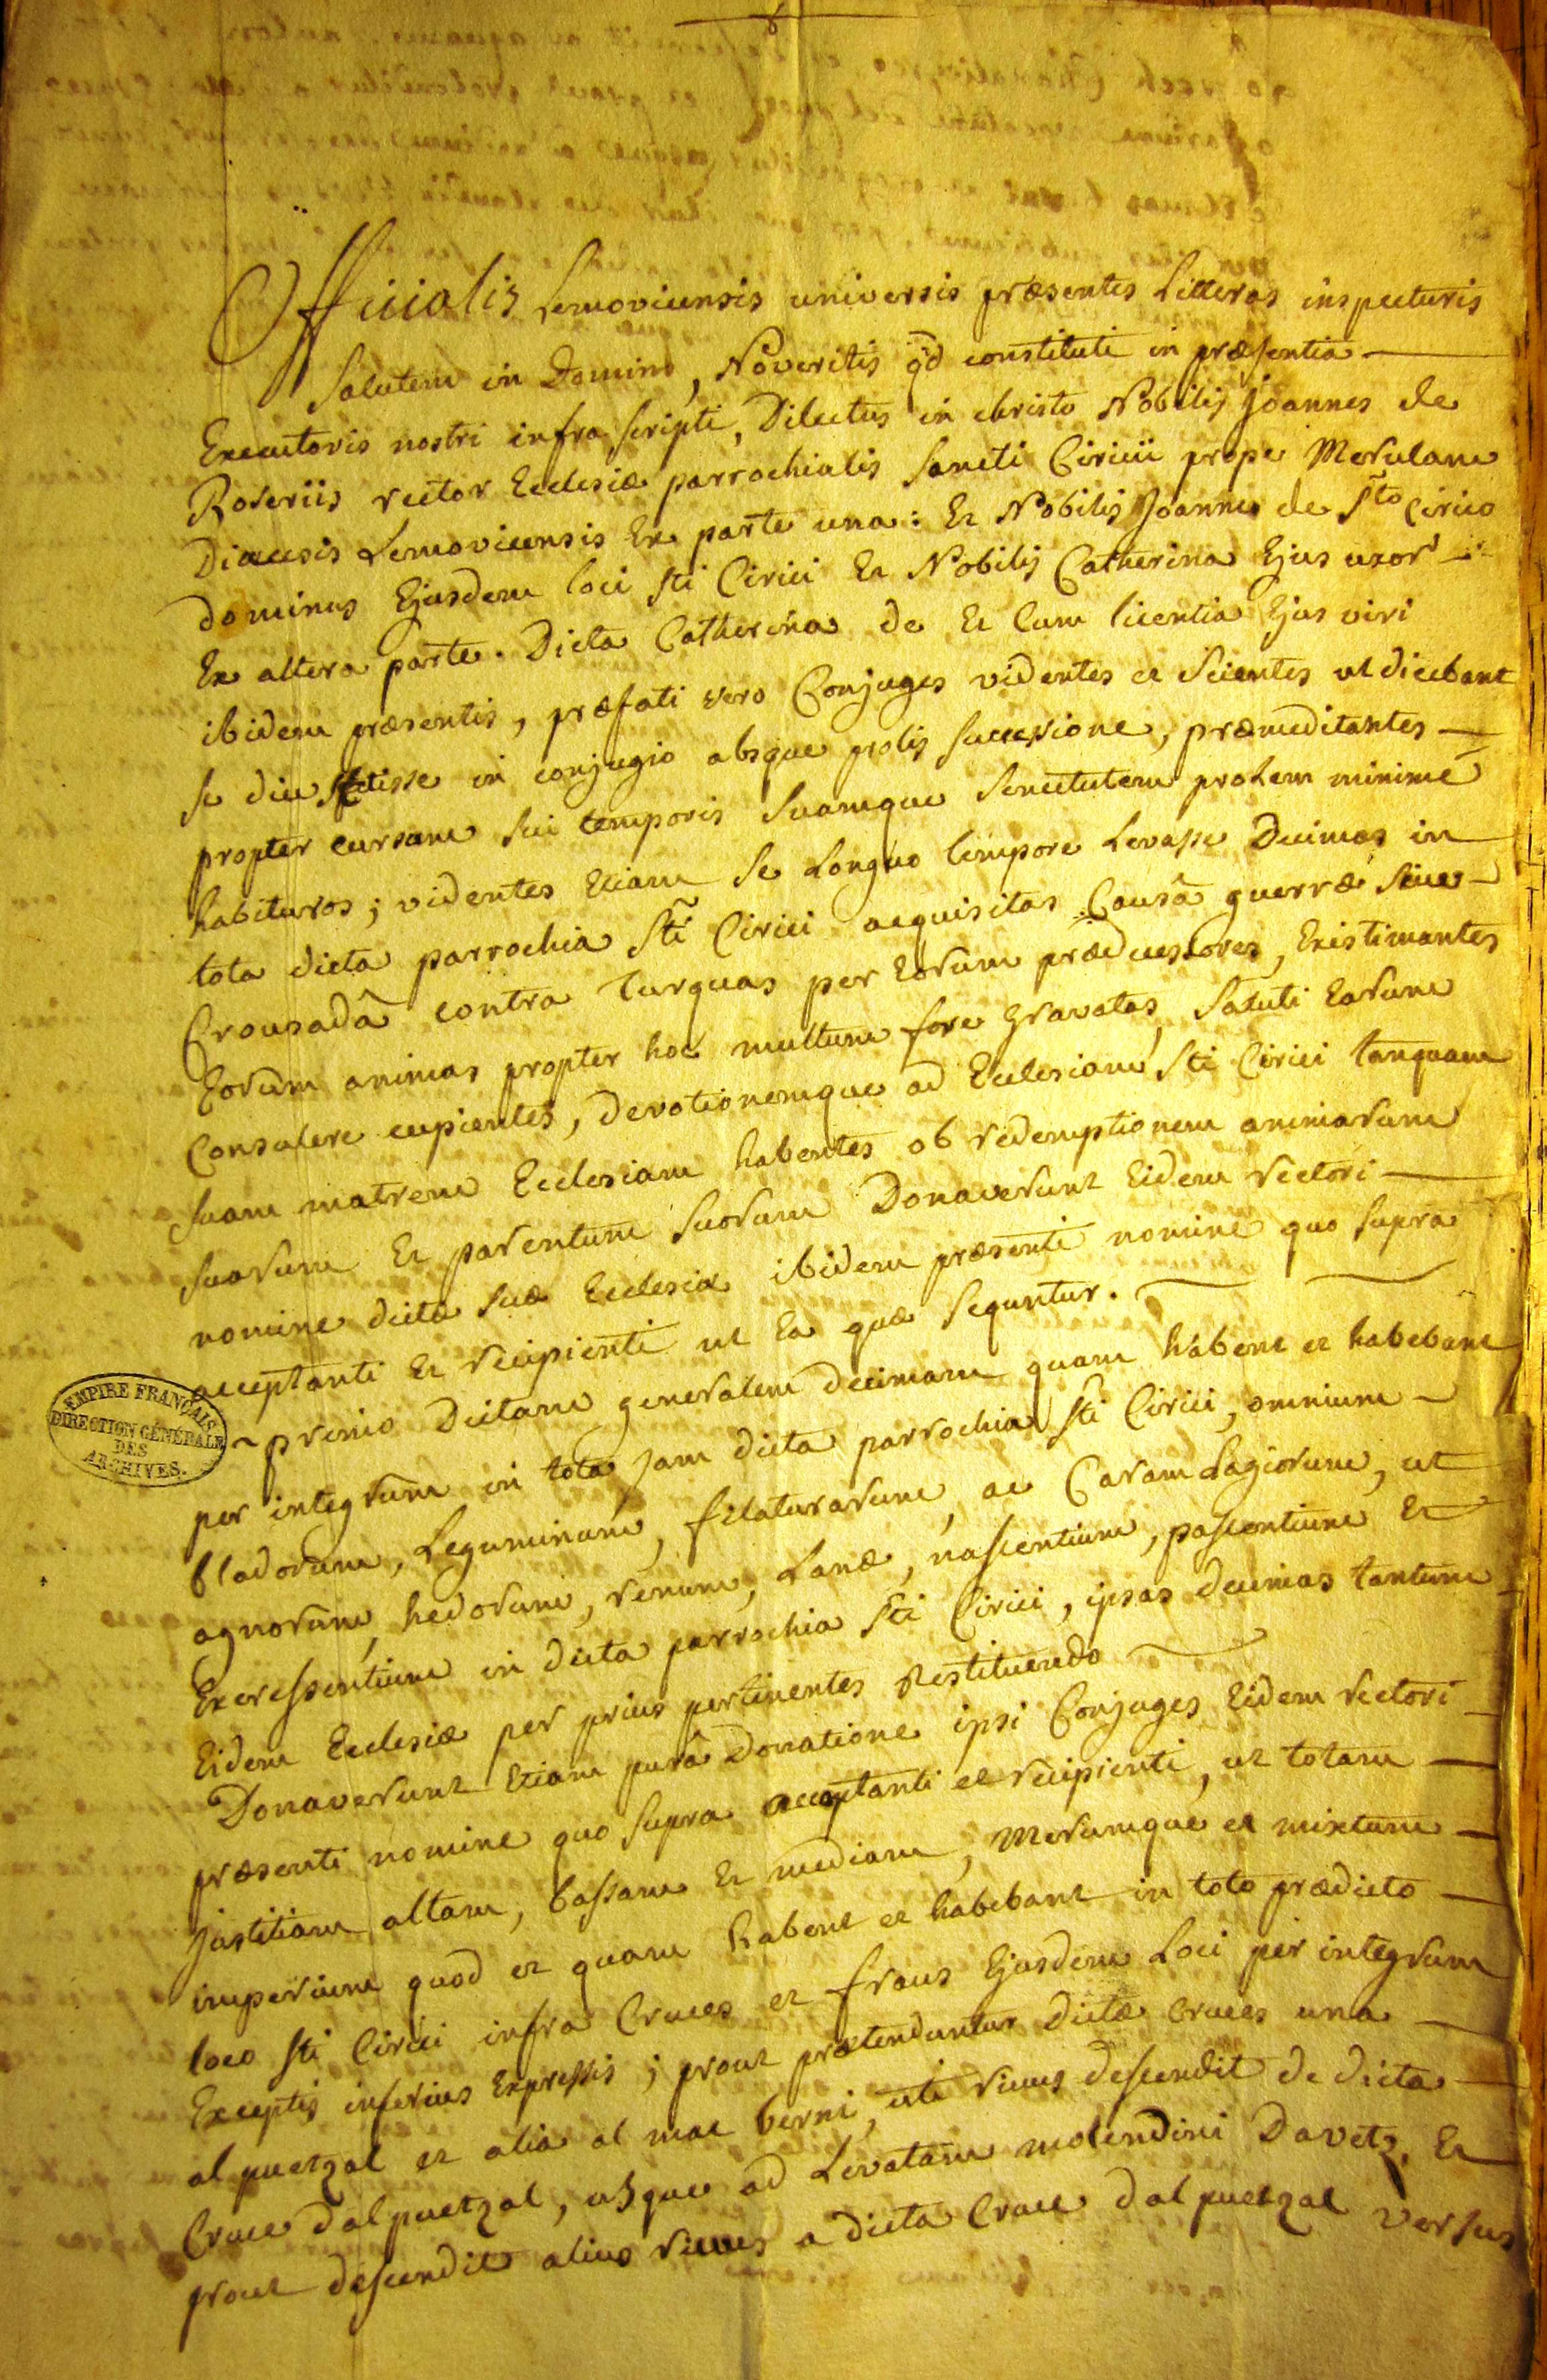 Officialis Lemovicensis universis præsentes Litteras inspecturis
Salutem in Domino, Noveritis qd constituti in præsentia
Executoris nostri infra scripti, Dilectus in christo Nobilis Joannes de
Roseriis rector Ecclesiæ parrochialis Sancti Ciricii prope Merulam
Diœcesis Lemovicensis Ex parte una: Et Nobilis Joannes de Sto Cirico
Dominus Ejusdem loci Sti Cirici Et Nobilis Catherina Ejus uxor
Ex altera parte. Dicta Catherina de Et Cum licentia Ejus viri
ibidem præsentis, præfati vero Conjuges videntes et Scientes ut dicebant
Se diu Stetisse in conjugio absque prolis Successione, præmeditantes
propter cursum Sui temporis Suamque Senectutem prolem minimé
habituros; videntes Etiam Se Longuo tempore Levasse Decimas in
tota dicta parrochia Sti Cirici acquisitas Causâ guerræ Sive
Crousadâ contra Turquas per Eorum prædecessores, Existimantes
Eorum animas propter hoc multum fore Gravatas, Saluti Earum
Consulere cupientes, Devotionemque ad Ecclesiam Sti Cirici tanquam
Suam matrem Ecclesiam habentes ob redemptionem animarum
Suarum Et parentum Suorum Donaverunt Eidem rectori
nomine dicta Suæ Ecclesiæ ibidem præsenti nomine quo Supra
acceptanti Et recipienti ut Ea quæ Sequntur.
primo Dictam generalem decimam quam habent et habebant
per integrum in tota jam dicta parrochia Sti Cirici, omnium
bladorum, Leguminum, filaturarum, ac CaramLagiorum, ut
agnorum, hedorum, renum, Lanæ, nascentium, pascentium Et
Excressentium in dicta parrochia Sti Cirici, ipsas decimas tantum
Eidem Ecclesiæ per prius pertinentes Restituendo
Donaverunt Etiam purâ Donatione ipsi Conjuges Eidem rectori
præsenti nomine quo Supra acceptanti et recipienti, ut totam
justitiam altam, bassam Et mediam, Merumque et mixtum
imperium quod et quam habent et habebant in toto prædicto
loco Sti Cirici infra Cruces et fraus Ejusdem Loci per integrum
Exceptis inferius Expressis; prout prætenduntur dictæ cruces una
al puetzal et alia al mac berni, uti rivus descendit de dicta
Cruce dal puetzal, usque ad Levatam molendini Davetz, Et
prout descendit alius rivus a dicta Cruce dal puetzal versus
EMPIRE FRANÇAIS
DIRECTION GÉNÉRALE
DES
ARCHIVES.